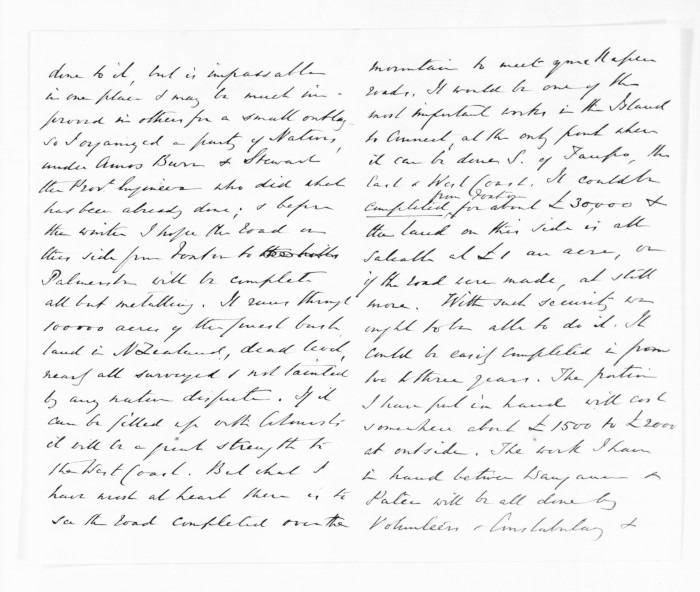 done to it, but is impassable
in one place & may be much im-
proved in others for a small outlay
so I organized a party of Natives,
under Amos Burr & Stewart
the Provl Engineer who did what
has been already done; & before
the winter I hope the road on
this side from Foxton to the hills
Palmerston will be complete
all but metalling. It runs through
100000 acres of the finest bush
land in N Zealand, dead level,
nearly all surveyed & not tainted
by any native dispute. If it
can be filled up with Colonists
it will be a great strength to
the West Coast. But what I
have most at heart there is to
see the road completed over the
mountain to meet your Napier
roads. It would be one of the
most important works in the Island
to connect, at the only point where
it can be done S. of Taupo, the
East & West Coast. It could be
completed, from Foxton for about £30,000 &
the land on this side is all
saleable at £1 an acre, or
if the road were made, at still
more. With such security we
ought to be able to do it. It
could be easily completed in from
two to three years. The portion
I have put in hand will cost
somewhere about £1500 to £2000
at outside. The work I have
in hand between Wanganui &
Patea will be all done by
Volunteers & Constabulary &